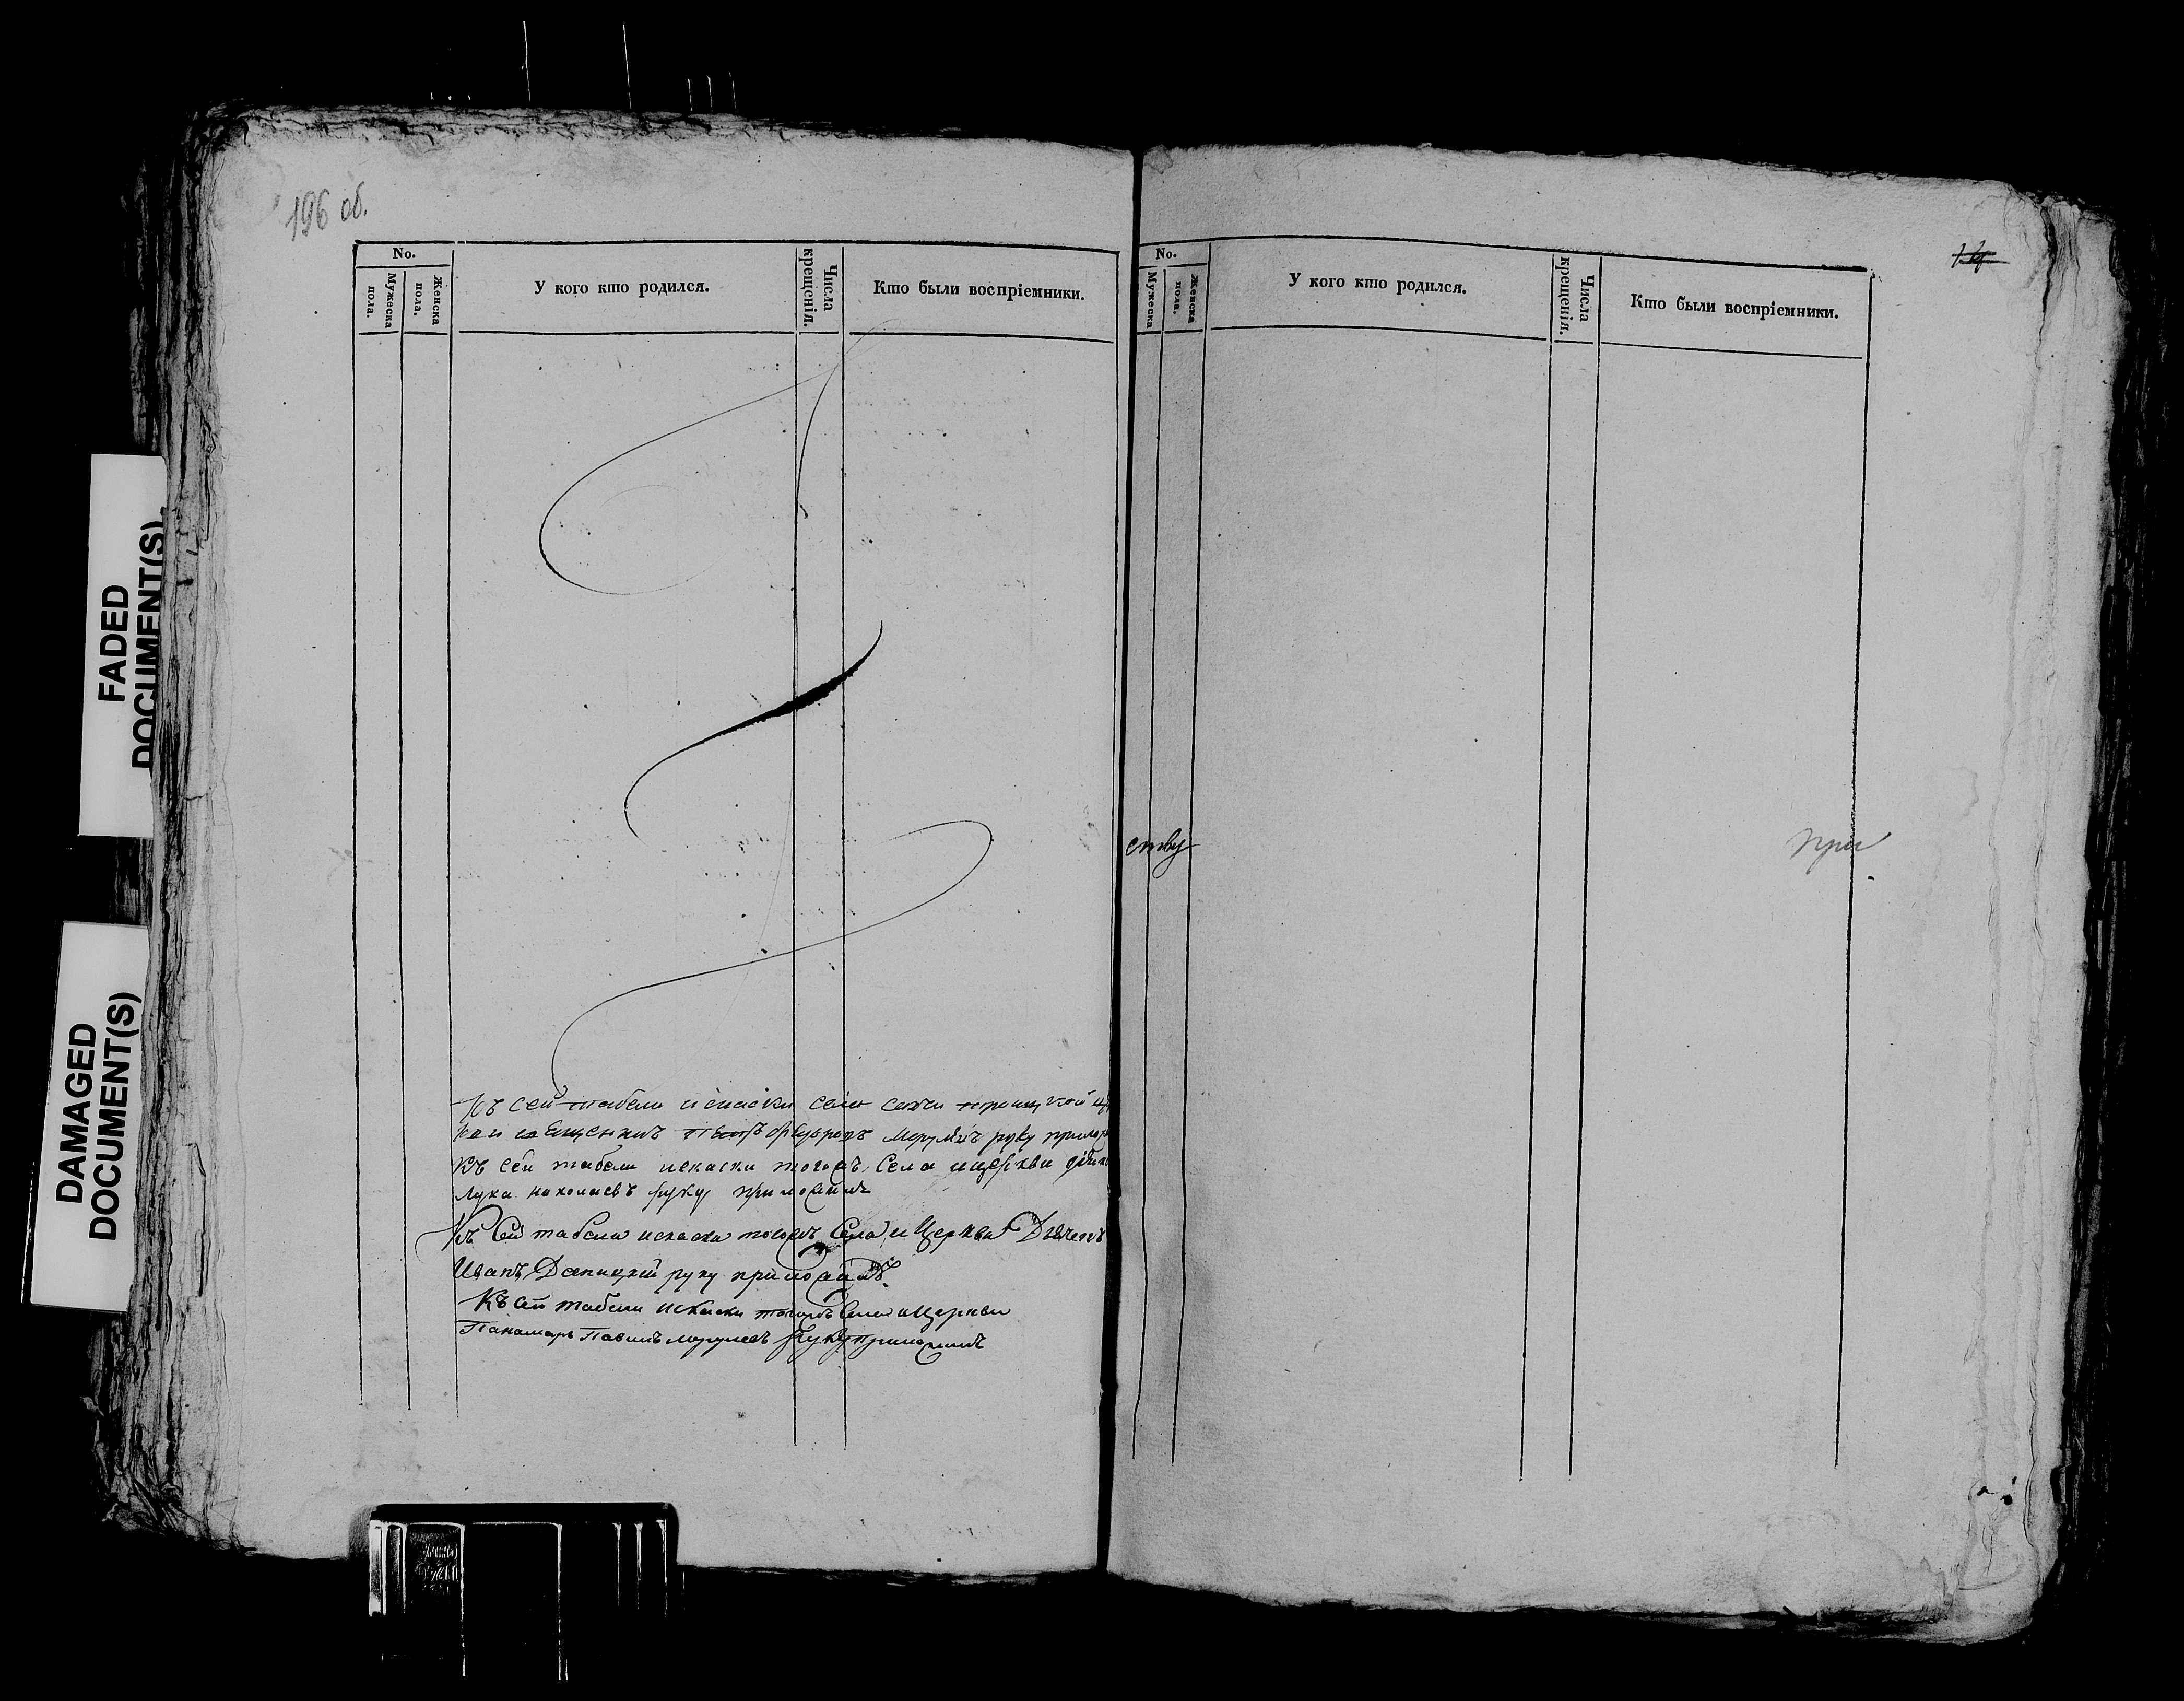 196 об.
No.
Мужеска пола.
Женска пола.
У кого кто родился.
Числа крещенія.
Кто были воспріемники.
Къ сей табели искаски села
священникъ Петръ руку
Къ сей табели искаски тогожъ села ицеркви
Лука николаевъ руку приложилъ
Къ сей табели искаски тогожъ Села и Церкви Дьячекъ
Иванъ руку приложилъ
Къ сей табели искаски тогожъ села ицеркви
Панамарь Павилъ руку приложилъ
No.
Мужеска
Женска пола.
У кого кто родился.
Числа крещенія.
Кто были воспріемники.
ству
при
FADED
DOCUMENT(S)
DAMAGED
DOCUMENT(S)